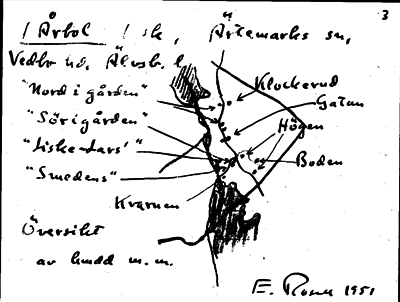 3
1 Årbol 1 sk, Ärtemarks sn,
Vedbo hd, Älvsb. l.
"Nord i gården"
"Sör i gården"
"Liske-Lars'"
"Smedens"
Kvarnen
Klockerud
Gatan
Högen
Boden
Översikt
av hmdd m.m.
E. Rosell 1951